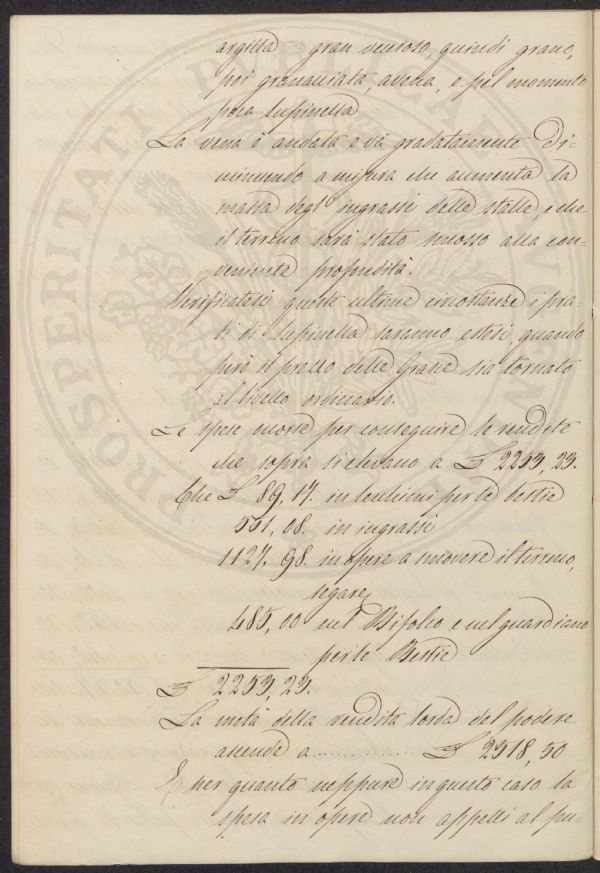 argilla gran ventoso, quindi grano,
poi granaiata, avena, e pel momento
poca lupinella
La vena è andata e và gradatamente di-
minuendo a misura che aumenta la
massa degl' ingrassi delle stalle, e che
il terreno sarà stato smosso alla con-
veniente profondità.
Verificatesi queste ultime circostanze i pra-
ti di lupinella saranno estesi, quando
però il prezzo delle Grasce sia tornato
al livello ordinario.
Le spese occorse per conseguire le rendite
che sopra si elevano a £ 2253, 23.
Che £ 89, 17. in per le bestie
551, 08. in ingrassi
1127, 98. in opere a muovere il terreno,
segare,
485, 00 nel Bifolco e nel guardiano
per le Bestie
£ 2253, 23.
La metà della rendita lorda del podere
ascende a £ 2518, 50
E per quanto neppure in questo caso la
spesa in opere non appelli al pu-
PROSPERITATI PUBLICAE